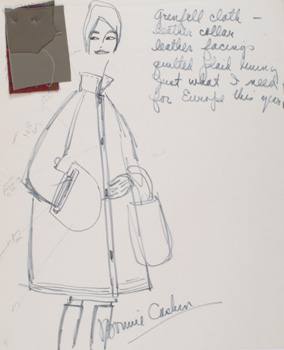 Grenfell cloth –
leather collar
leather facings
quilted plaid lining
Just what I need
for Europe this year!
Bonnie Cashin